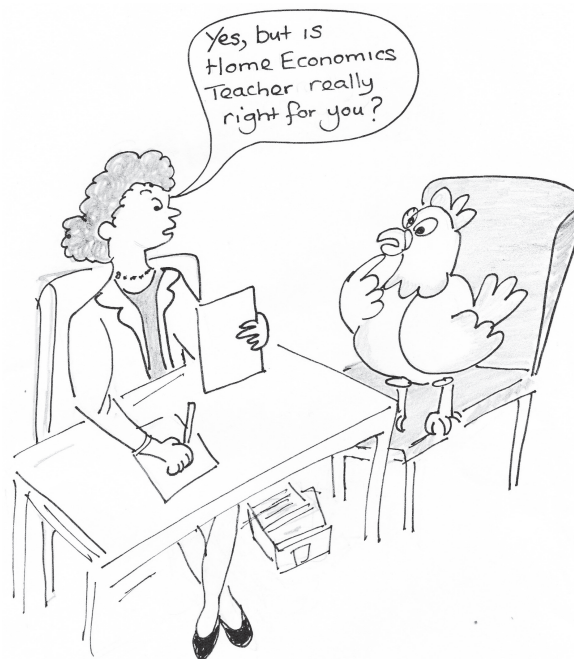 Yes, but is
Home Economics
Teacher really
right for you?